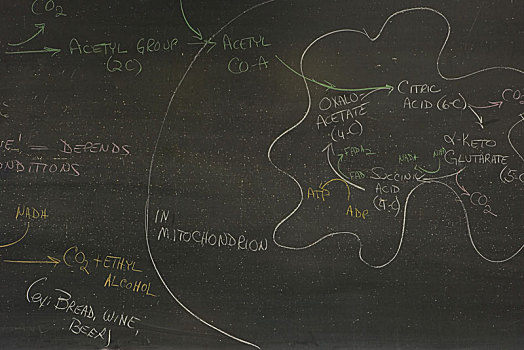 CO2
ACETYL GROUP
(2C)
ACETYL
CO-A
CITRIC
ACID (6-C)
CO
OXALO-
ACETATE
(4-C)
α-KETO
GLUTARATE
(5-C
= DEPENDS
ONDITIONS
FADH2
FAD
NADH
NAD
SUCCINIC
ACID
(4-C)
CO2
ATP
ADP
NADH
IN
MITOCHONDRION
CO2 + ETHYL
ALCOHOL
(ex: BREAD, WINE,
BEER)